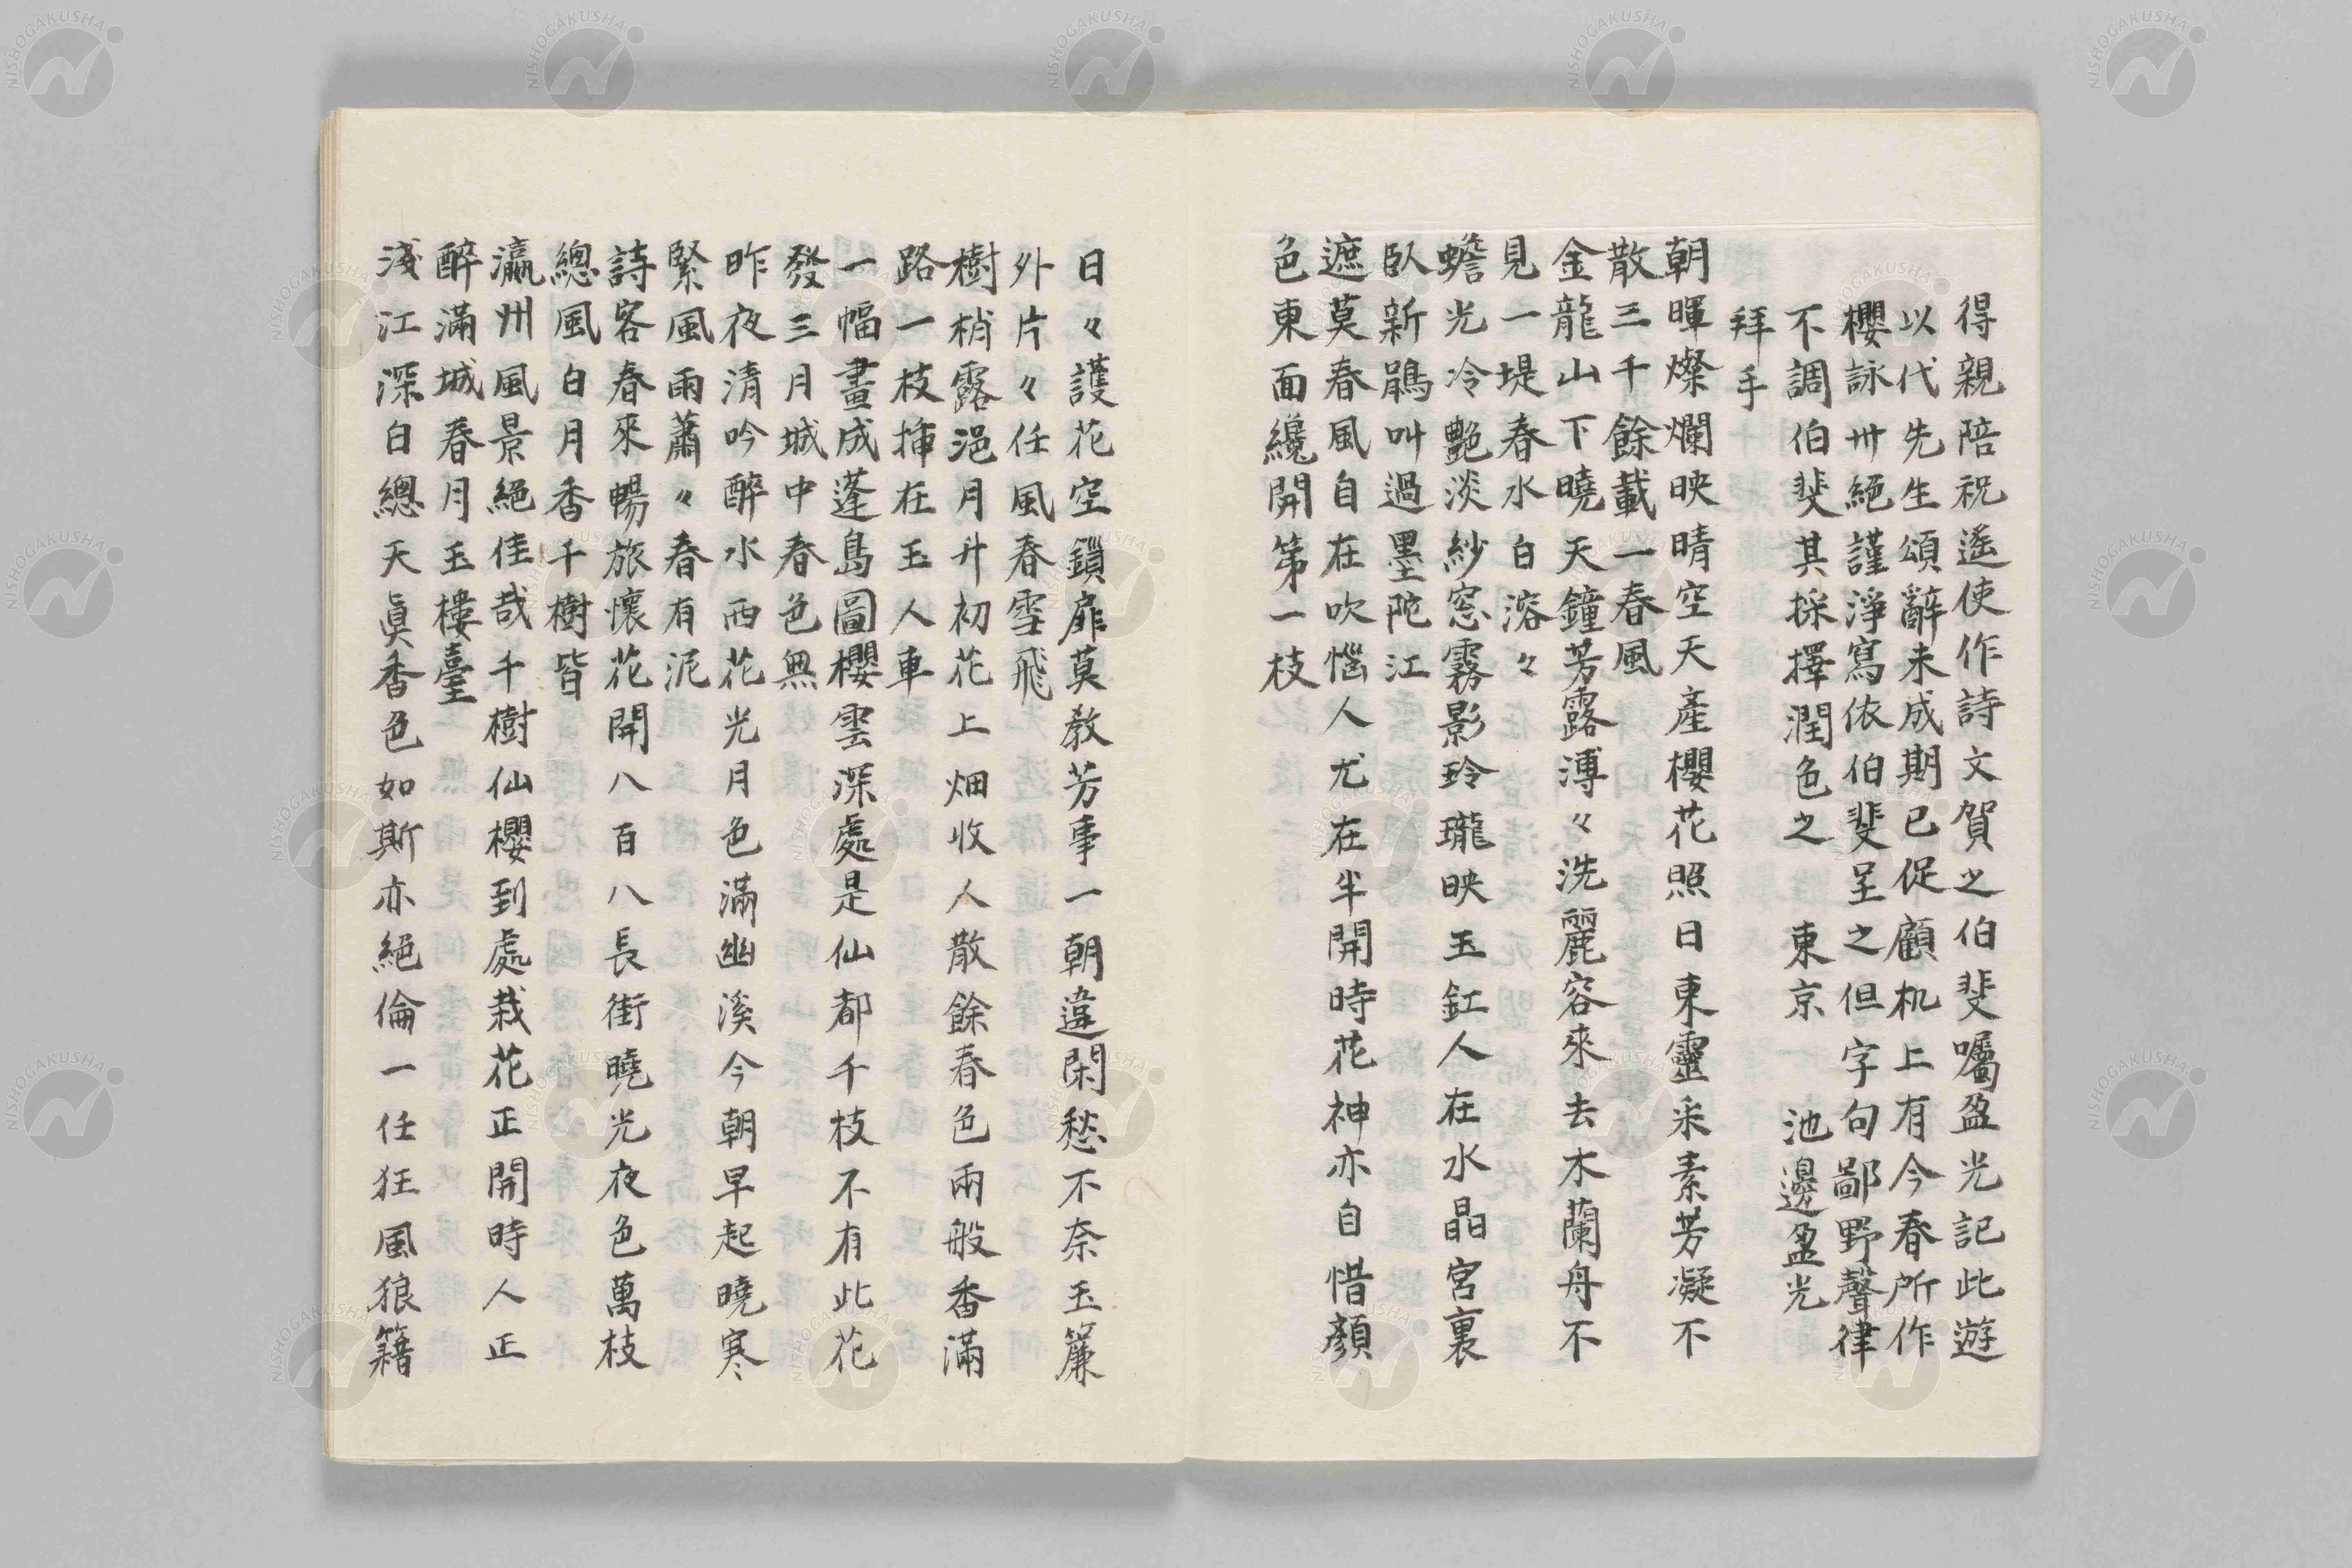 得親陪祝遙使作詩文賀之伯斐囑盈光記此遊
以代先生頌辭未成期已促顧机上有今春所作
櫻詠卅絕謹淨寫依伯斐呈之但字句鄙野聲律
不調伯斐其採擇潤色之　東京　池邊盈光
拜手
朝暉燦爛映晴空天產櫻花照日東靈采素芳凝不
散三千餘載一春風
金龍山下曉天鐘芳露溥々洗麗容來去木蘭舟不
見一堤春水白溶々
蟾光冷艷淡紗窓霧影玲瓏映玉釭人在水晶宮裏
臥新鵑叫過墨陀江
遮莫春風自在吹惱人尤在半開時花神亦自惜顏
色東面纔開第一枝
日々護花空鎖扉莫教芳事一朝違閑愁不奈玉簾
外片々任風春雪飛
樹梢露浥月升初花上烟收人散餘春色兩般香滿
路一枝揷在玉人車
一幅畫成蓬島圖櫻雲深處是仙都千枝不有此花
發三月城中春色無
昨夜清吟醉水西花光月色滿幽溪今朝早起曉寒
緊風雨蕭々春有泥
詩客春來暢旅懷花開八百八長街曉光夜色萬枝
總風白月香千樹皆
瀛州風景絕佳哉千樹仙櫻到處栽花正開時人正
醉滿城春月玉樓臺
淺江深白總天眞香色如斯亦絕倫一任狂風狼籍